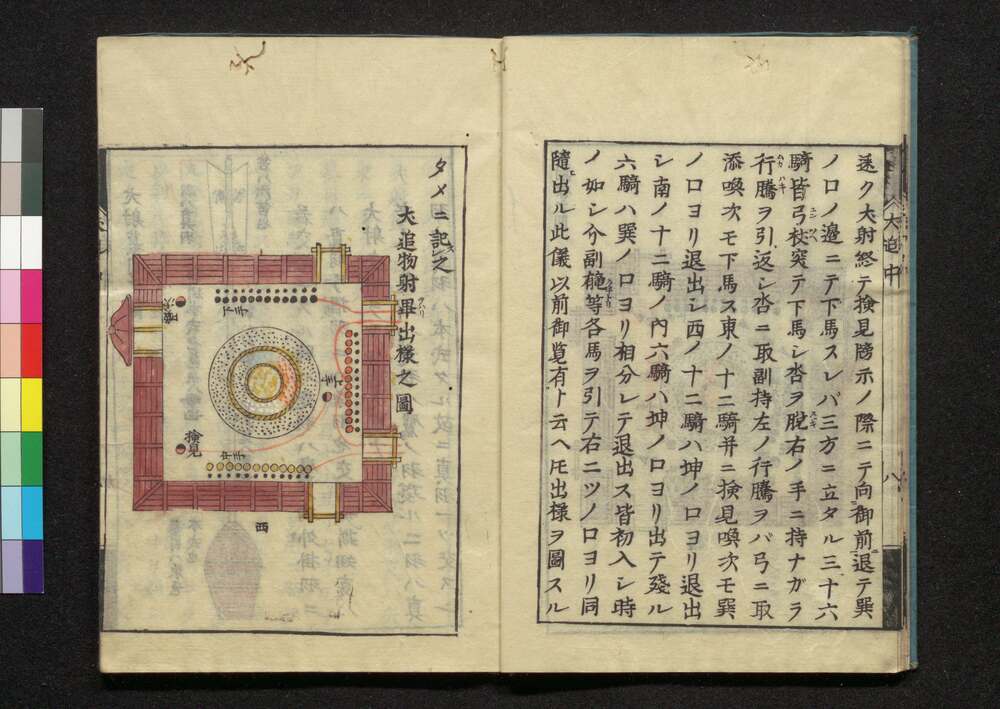 遂ク犬射終テ検見牓示ノ際ニテ向御前退テ巽
ノロノ邊ニテ下馬スレバ三方ニ立タル三十六
騎皆弓杖突テ下馬シ沓ヲ脱右ノ手ニ持ナガラ
行騰ヲ引返シ沓ニ取副持左ノ行騰ヲバ弓ニ取
添喚次モ下馬ス東ノ十二騎并ニ検見喚次モ巽
ノロヨリ退出シ西ノ十二騎ハ坤ノロヨリ退出
シ南ノ十二騎ノ内六騎ハ坤ノロヨリ出テ殘ル
六騎ハ巽ノロヨリ相分レテ退出ス皆初入シ時
ノ如シ今副等各馬ヲ引テ右二ツノロヨリ同
隨出ル此儀以前御覧有ト云ヘ𪜈出様ヲ圖スル
犬追中
八
タメニ記之
犬追物射畢出様之圖
喚次
下手
上手
検見
中手
西